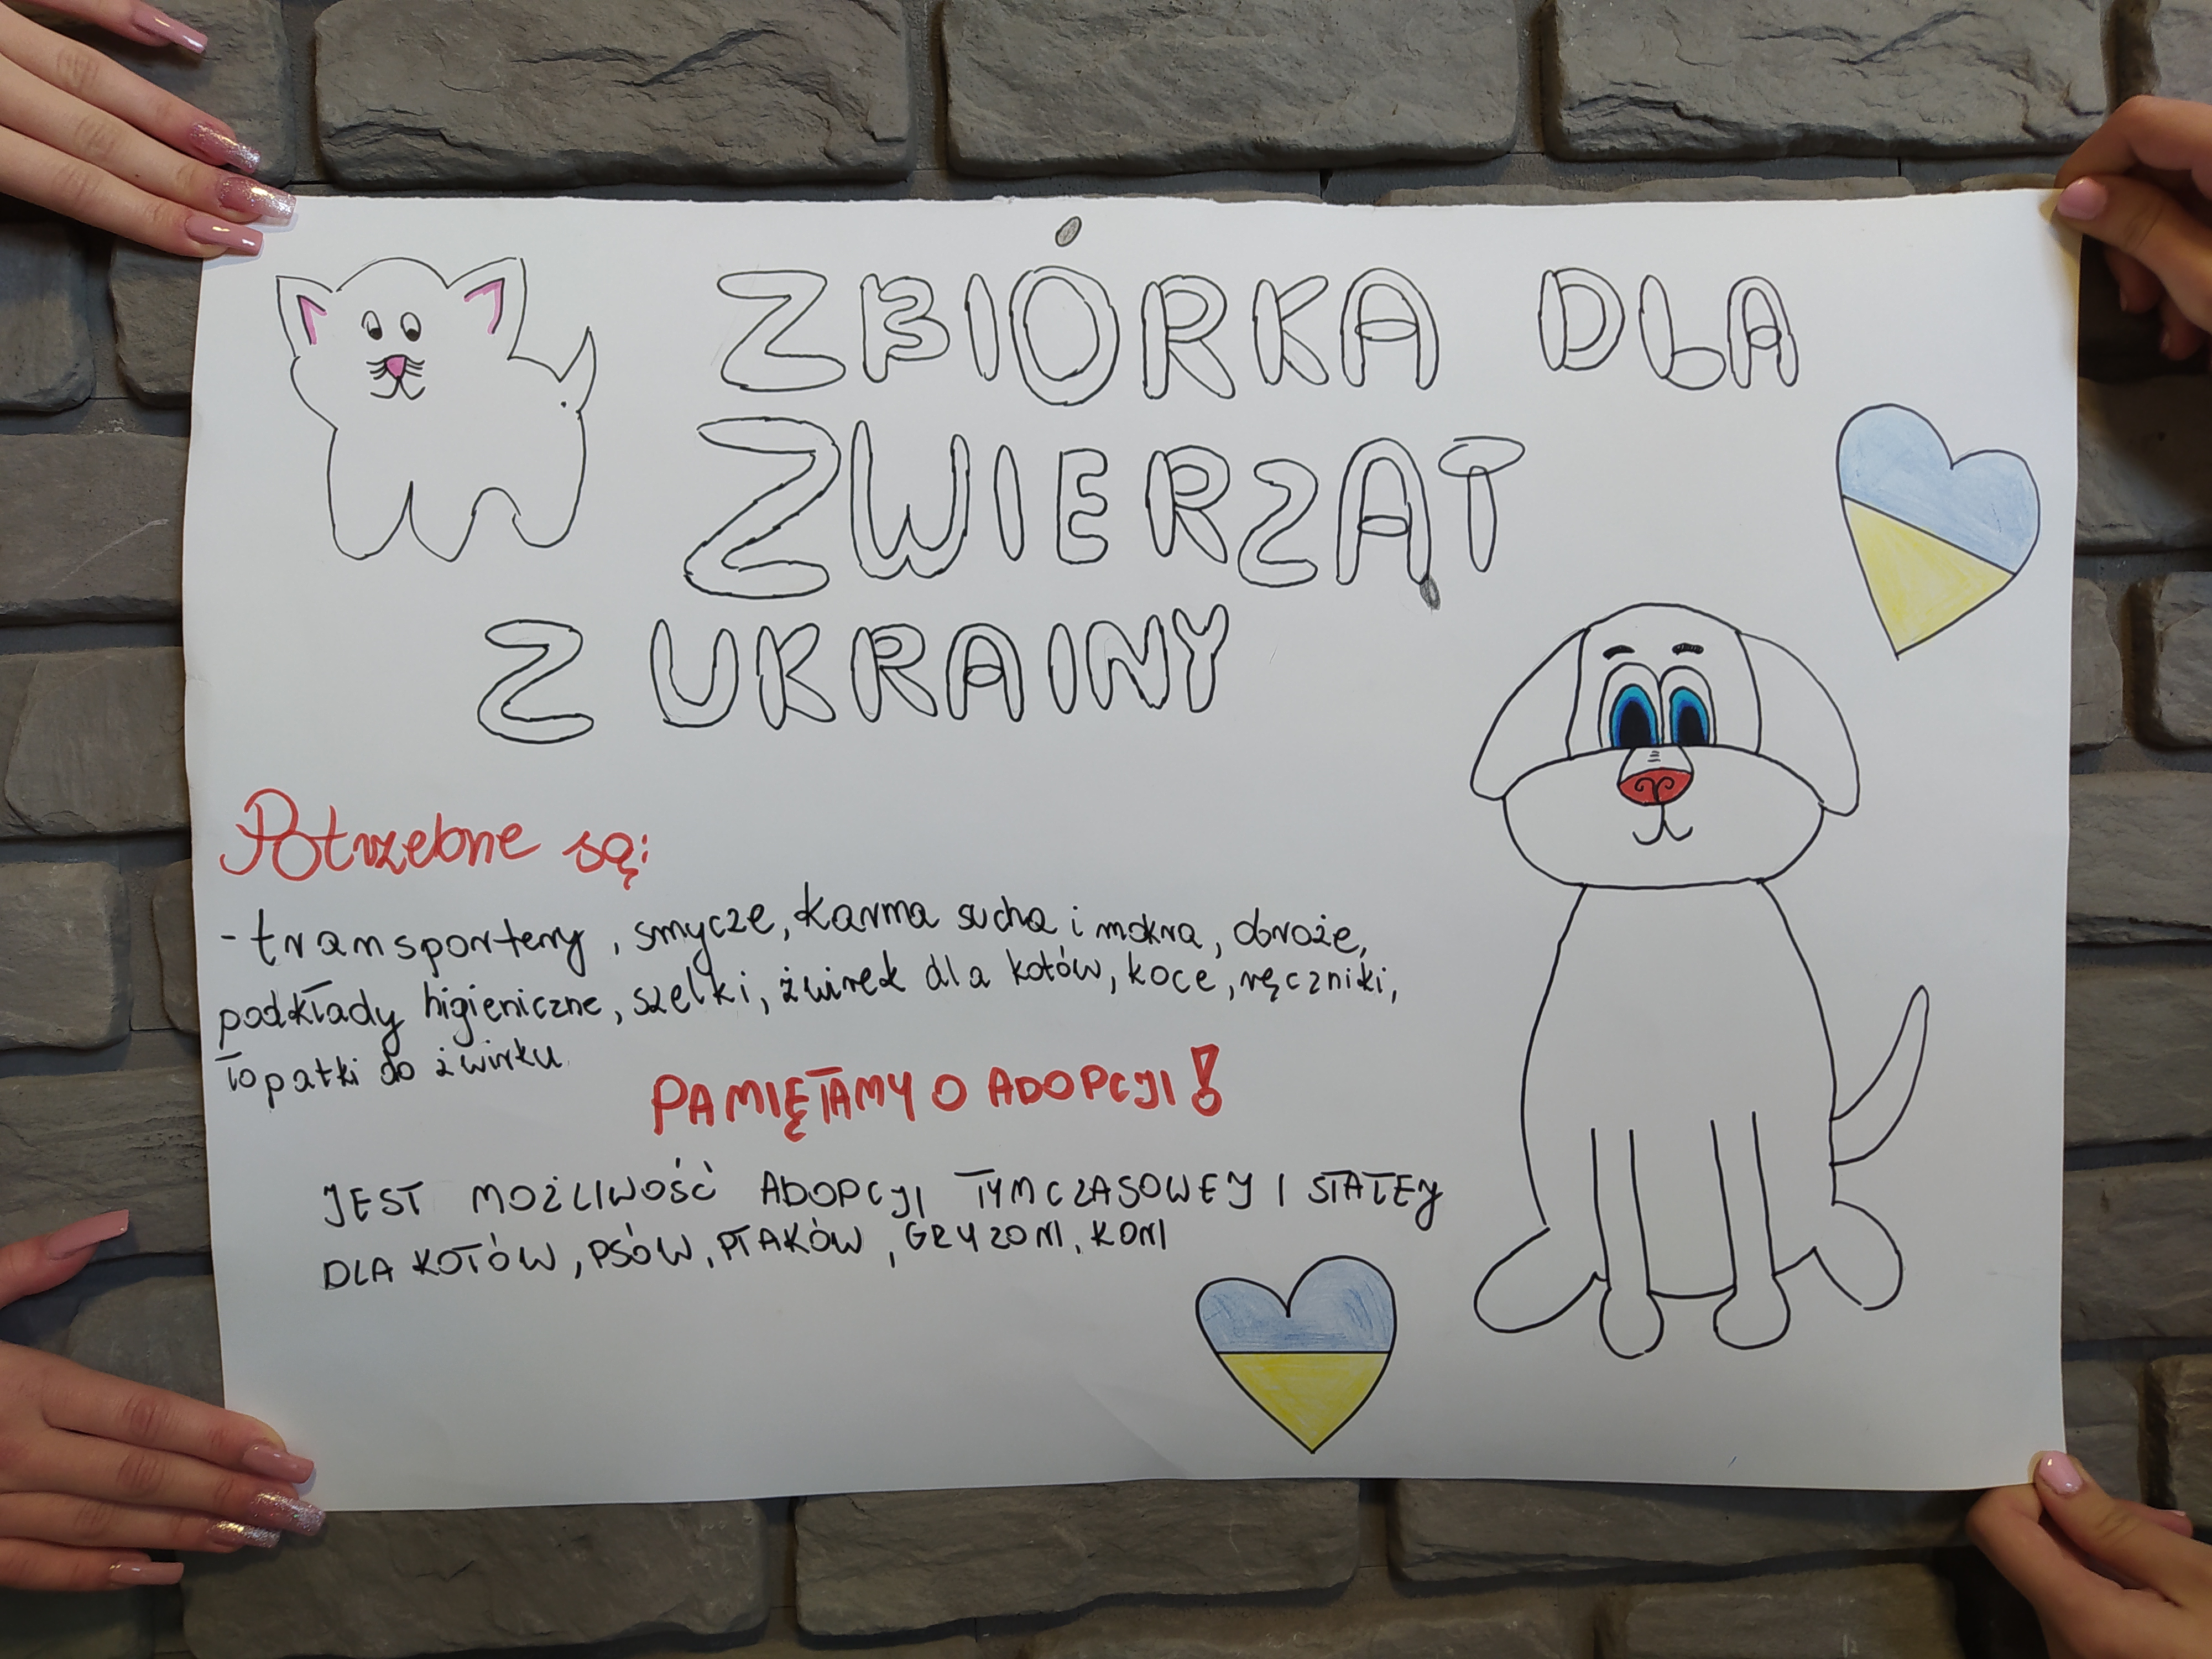 ZBIÓRKA DLA
ZWIERZĄT
Z UKRAINY
Potrzebne są:
-transportery, smycze, karma sucha i mokra, obroże,
podkłady higieniczne, szelki, żwirek dla kotów, koce, ręczniki,
łopatki do żwirku
PAMIĘTAMY O ADOPCJI!
JEST MOŻLIWOŚĆ ADOPCJI TYMCZASOWEJ I STAŁEJ
DLA KOTÓW, PSÓW, PTAKÓW, GRYZONI, KONI